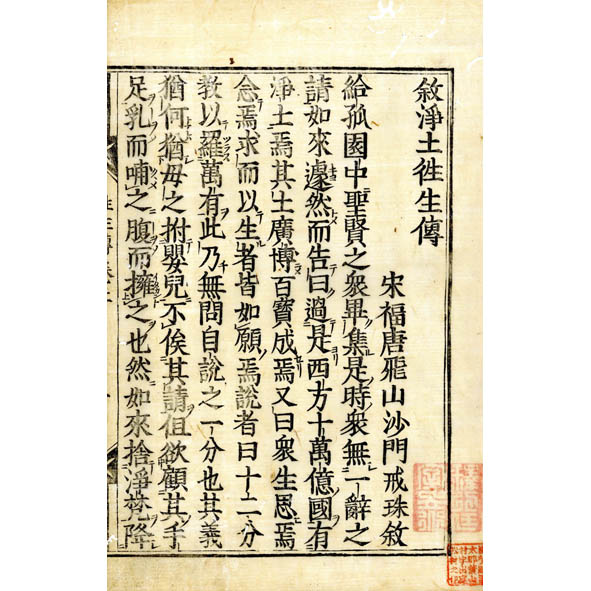 敘淨土徃生傳
宋福唐飛山沙門戒珠敘
給孤園中聖賢之衆畢集是時衆無一辭之
請如來遽然而告曰過是西方十萬億國有
淨土焉其土廣博百寶成焉又曰衆生思焉
念焉求而以生者皆如願焉說者曰十二分
教以羅萬有此乃無問自說之一分也其義
猶何猶母之拊嬰兒不俟其請但欲顧其手
足乳而哺之腹而擁之也然如來捨淨梵降